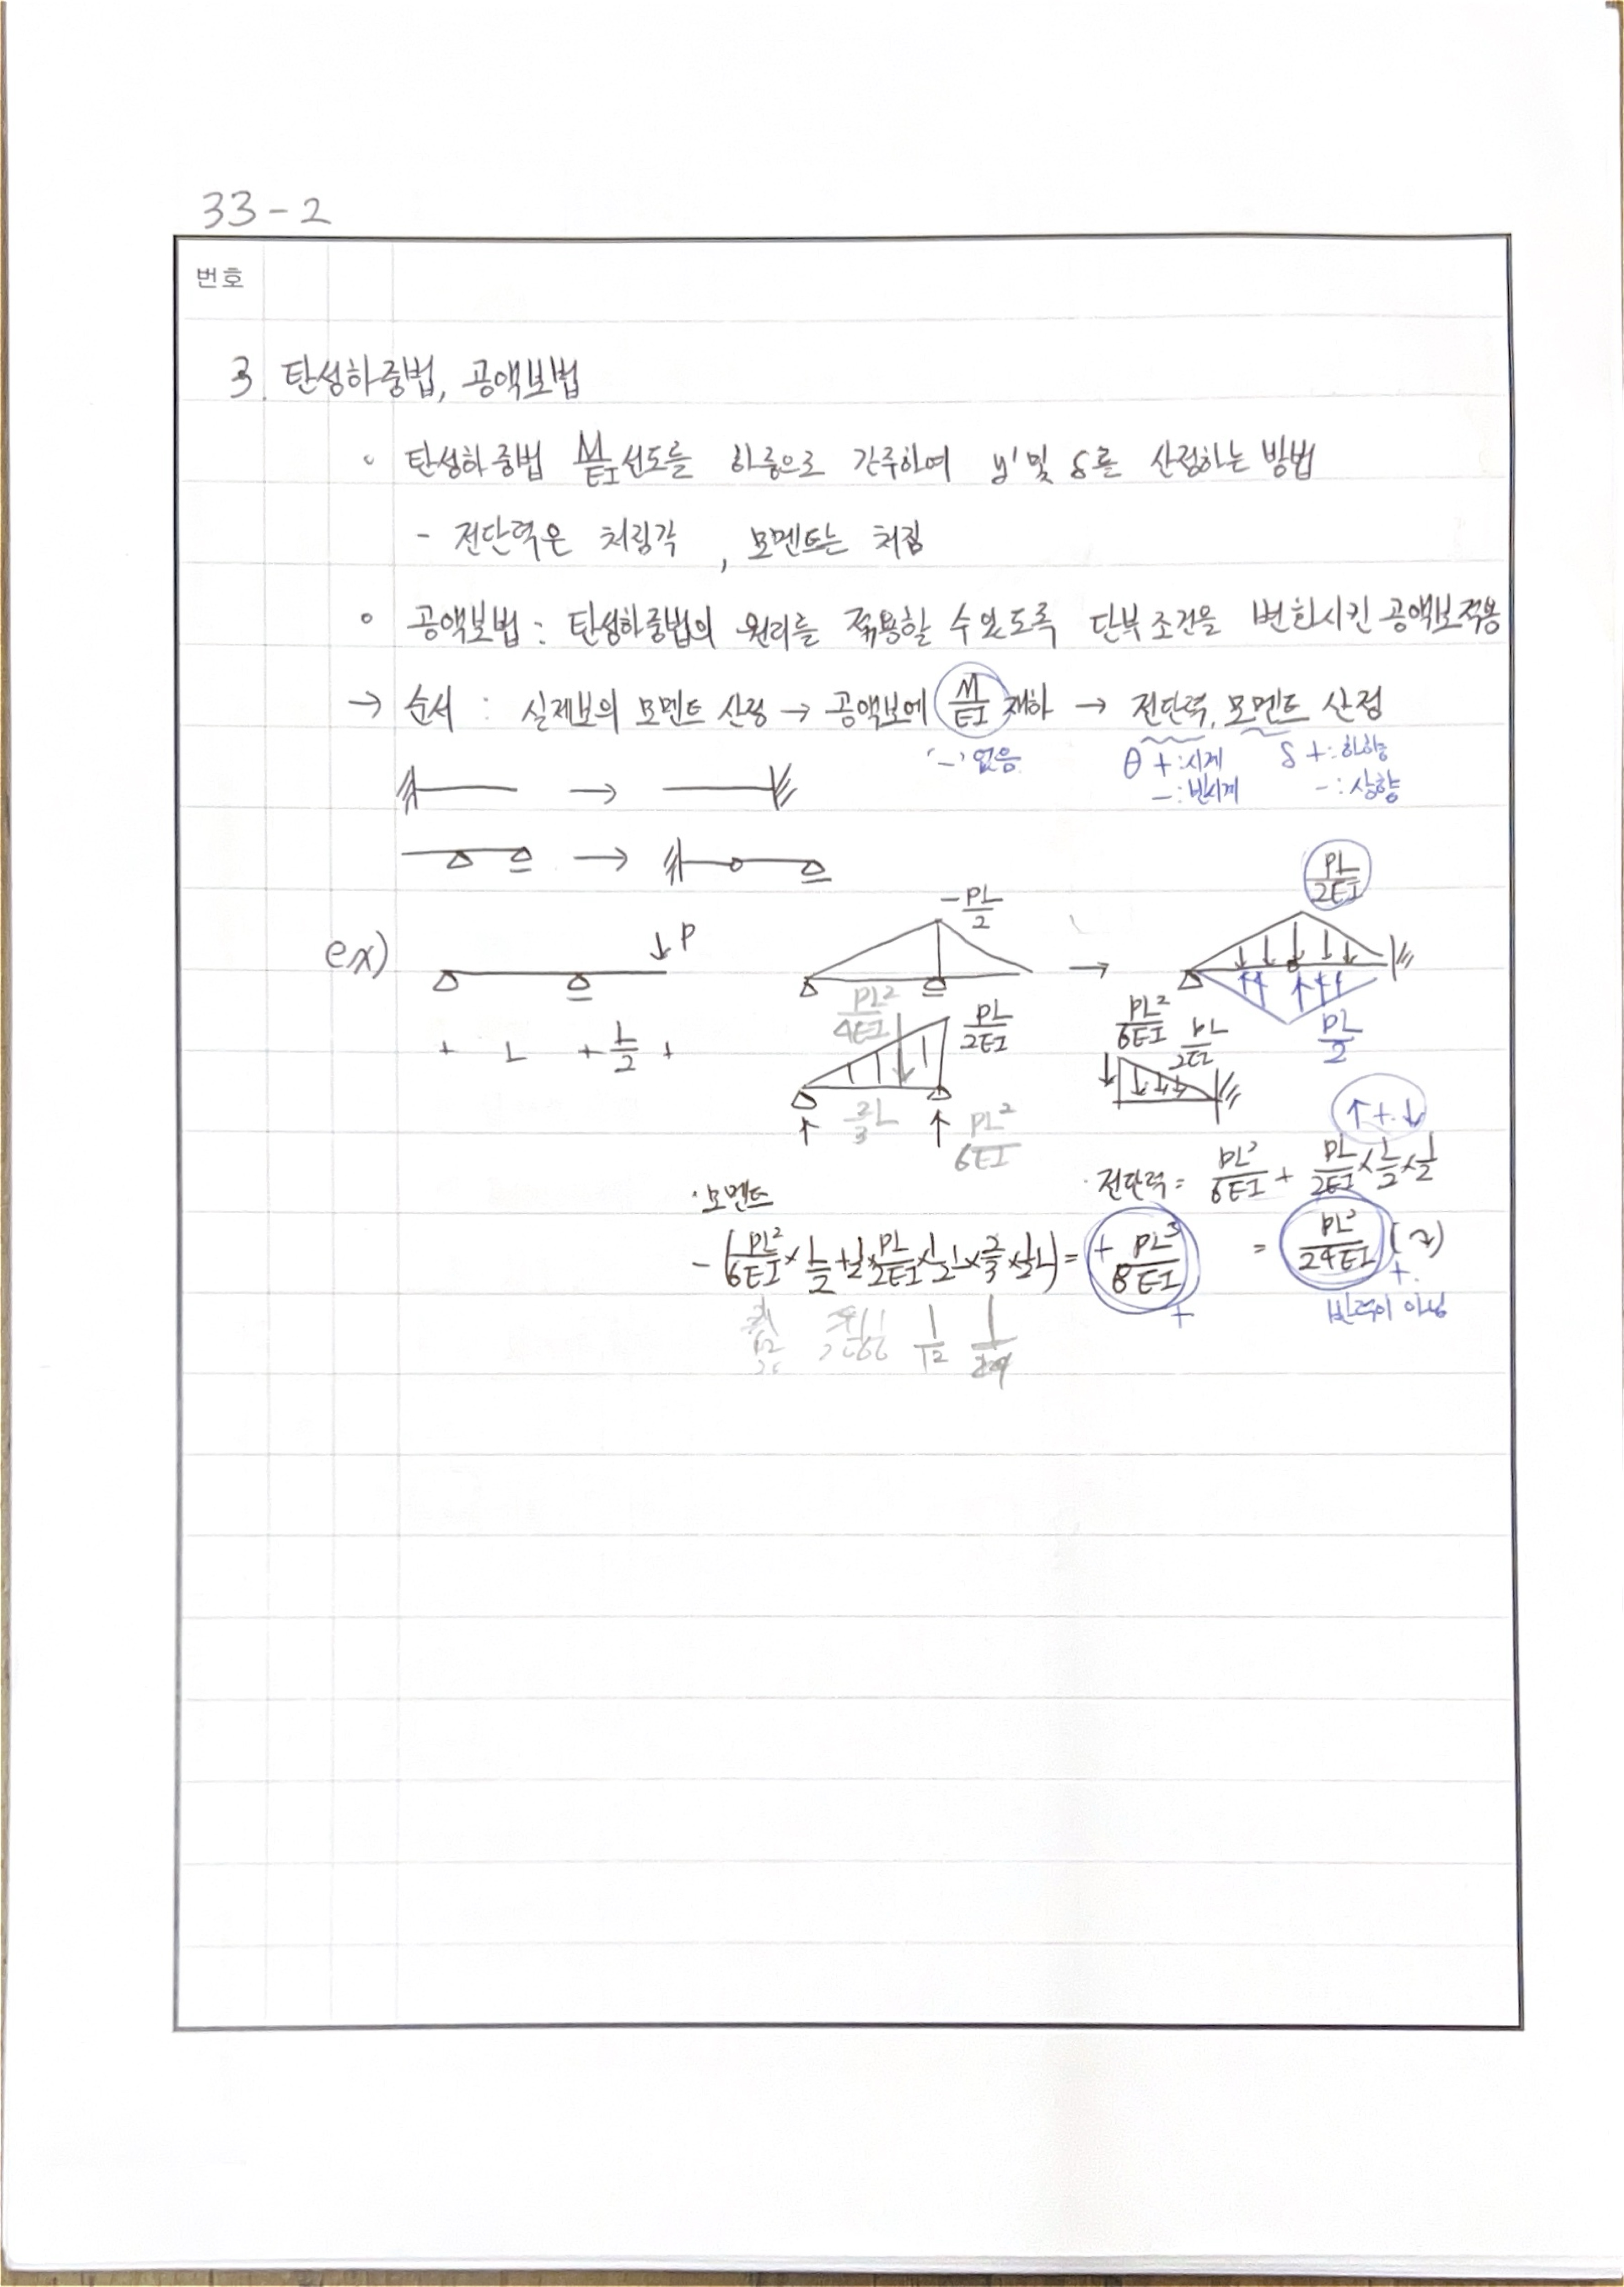 33-2
번호
3. 탄성하중법, 공액보법
◦ 탄성하중법 M/EI 선도를 하중으로 간주하여 y' 및 δ를 산정하는 방법
- 전단력은 처짐각, 모멘트는 처짐
◦ 공액보법 : 탄성하중법의 원리를 적용할 수 있도록 단부 조건을 변화시킨 공액보 적용
→ 순서 : 실제보의 모멘트 산정 → 공액보에 M/EI 재하 → 전단력, 모멘트 산정
'-' 없음
θ +: 시계
-: 반시계
δ +: 하향
-: 상향
→
→
ex)
P
-PL/2
→
PL/2EI
L
L/2
PL²/4EI
PL/2EI
2/3 L
PL²/6EI
PL²/6EI
PL/2EI
PL/2
↑+↓
· 모멘트
· 전단력 = PL²/6EI + PL/2EI × L/2 × 1/2
-(PL²/6EI × L/2 + 1/2 × PL/2EI × 1/2 L × 2/3 × 1/2 L) = + PL³/8EI
+
= PL²/24EI (↷)
+.
반력이 아님
1/12